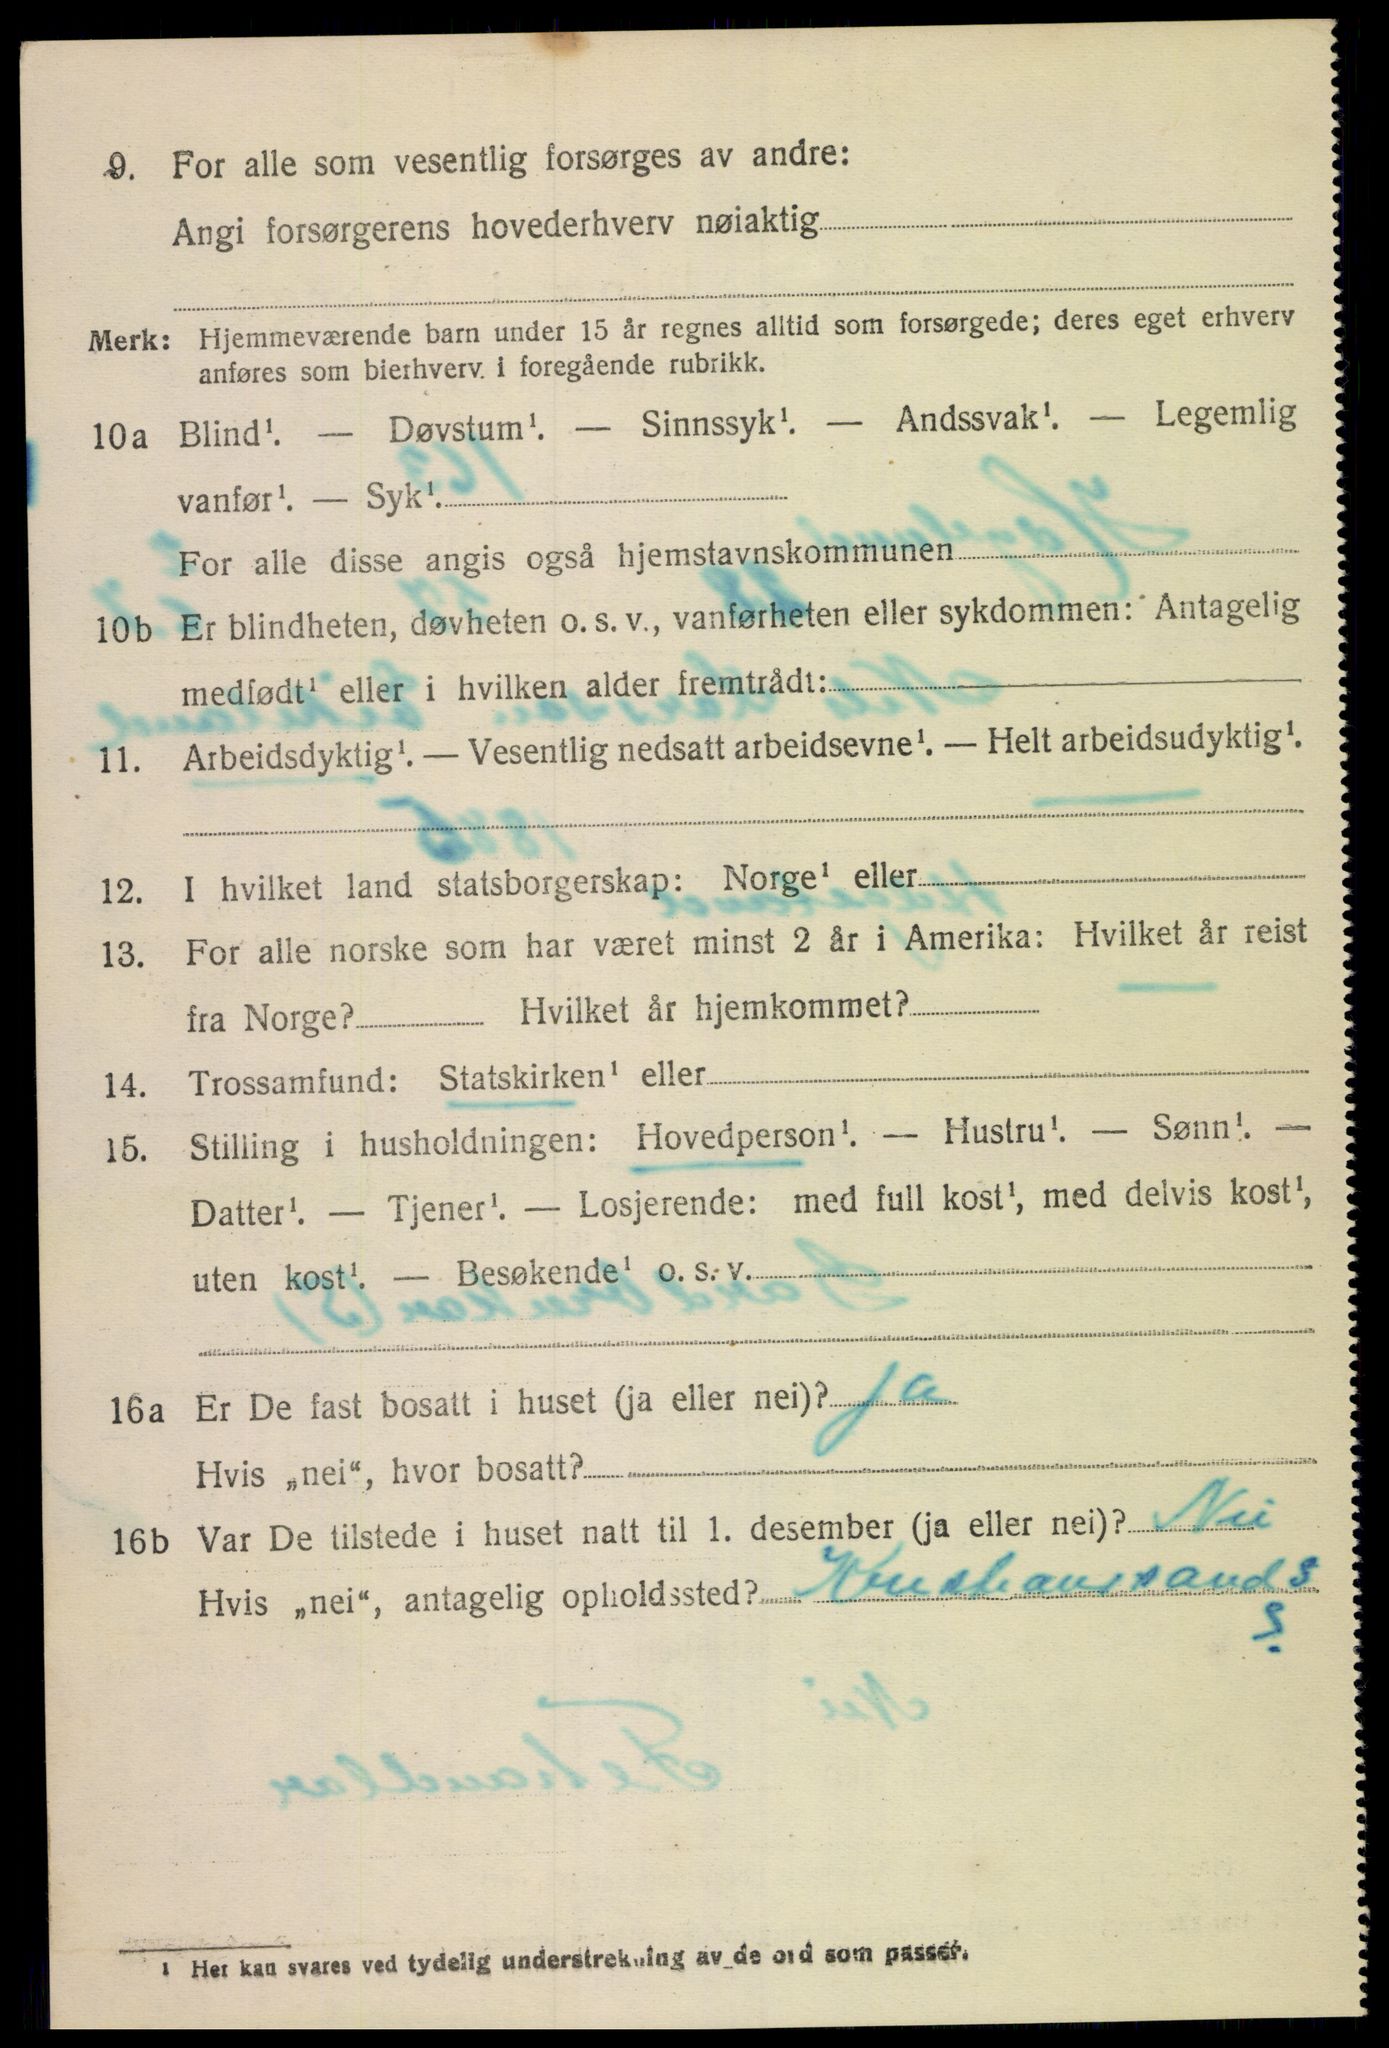 9. For alle som vesentlig forsørges av andre:
Angi forsørgerens hovederhverv nøiaktig
Merk: Hjemmeværende barn under 15 år regnes alltid som forsørgede; deres eget erhverv
anføres som bierhverv i foregående rubrikk.
10a Blind¹. — Døvstum¹. — Sinnssyk¹. — Andssvak¹. — Legemlig
vanfør¹. — Syk¹.
For alle disse angis også hjemstavnskommunen
10b Er blindheten, døvheten o. s. v., vanførheten eller sykdommen: Antagelig
medfødt¹ eller i hvilken alder fremtrådt:
11. Arbeidsdyktig¹. — Vesentlig nedsatt arbeidsevne¹. — Helt arbeidsudyktig¹.
12. I hvilket land statsborgerskap: Norge¹ eller
13. For alle norske som har været minst 2 år i Amerika: Hvilket år reist
fra Norge? Hvilket år hjemkommet?
14. Trossamfund: Statskirken¹ eller
15. Stilling i husholdningen: Hovedperson¹. — Hustru¹. — Sønn¹. —
Datter¹. — Tjener¹. — Losjerende: med full kost¹, med delvis kost¹,
uten kost¹. — Besøkende¹ o. s. v.
16a Er De fast bosatt i huset (ja eller nei)? ja
Hvis „nei“, hvor bosatt?
16b Var De tilstede i huset natt til 1. desember (ja eller nei)? Nei
Hvis „nei“, antagelig opholdssted? Kristiansand S
?
¹ Her kan svares ved tydelig understrekning av de ord som passer.